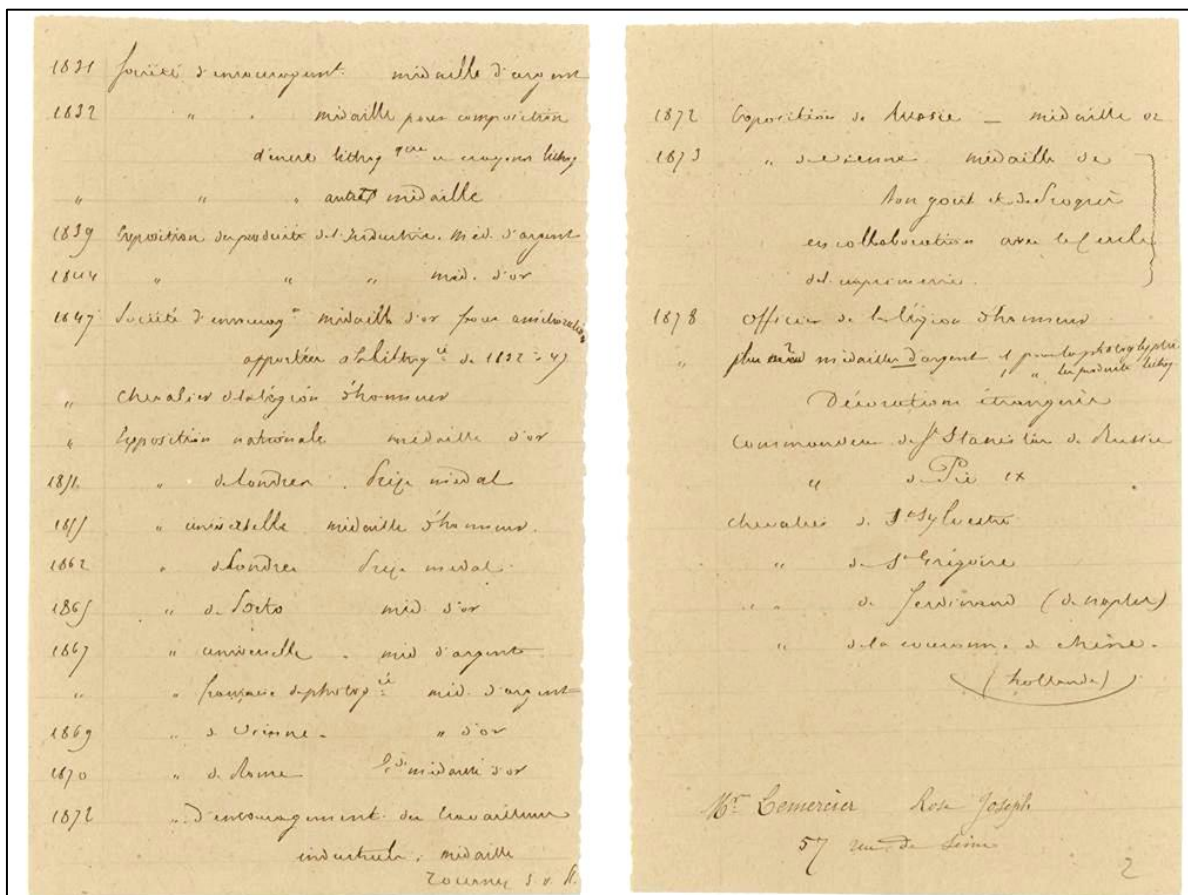 1831 Société d'encouragent médaille d'argent
1832 " " médaille pour composition
d'encre lithog que et crayons lithog
" " " autre médaille
1839 Exposition des produits de l'Industrie. Méd. d'argent
1844 " " " méd. d'or
1847 Société d'encourag médaille d'or pour amélioration
apportées à la lithog ie de 1832 à 47
" chevalier de la légion d'honneur
" Exposition nationale médaille d'or
1851 " de Londres. Prize medal
1855 " universelle médaille d'honneur.
1862 " de Londres Prize medal
1865 " de Porto méd. d'or
1867 " universelle. méd. d'argent.
" " française de photog ie méd. d'argent
1869 " de Vienne. " d'or
1870 " de Rome médaille d'or
1872 " d'encouragement des travailleurs
industriels. médaille
Tournez S. v. P.
1872 Exposition de Russie — médaille or
1873 " de Vienne médaille de
bon goût et de Progrès
en collaboration avec le Cercle
de l'imprimerie.
1878 officier de la légion d'honneur
" médailles d'argent 1 pour la photoglyptie.
1 " les produits lithog.
Décorations étrangères
Commandeur de St Stanislas de Russie
" de Pie IX
chevalier de St Sylvestre
" de St Grégoire
" " de Ferdinand (de Naples)
" de la couronne de chêne.
(hollande)
Mr Lemercier Rose Joseph
57 rue de Seine
2